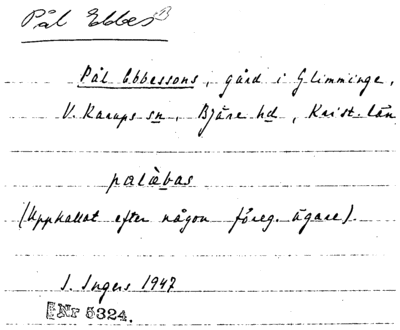 Pål Ebbes B
Pål Ebbessons, gård i Glimminge,
V. Karups sn, Bjäre hd, Krist. län
palæ̀bas
(Uppkallat efter någon föreg. ägare).
I. Ingers 1947
Nr 5324.